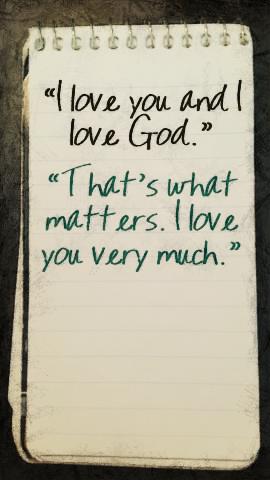 “I love you and I
love God.”
“That’s what
matters. I love
you very much.”